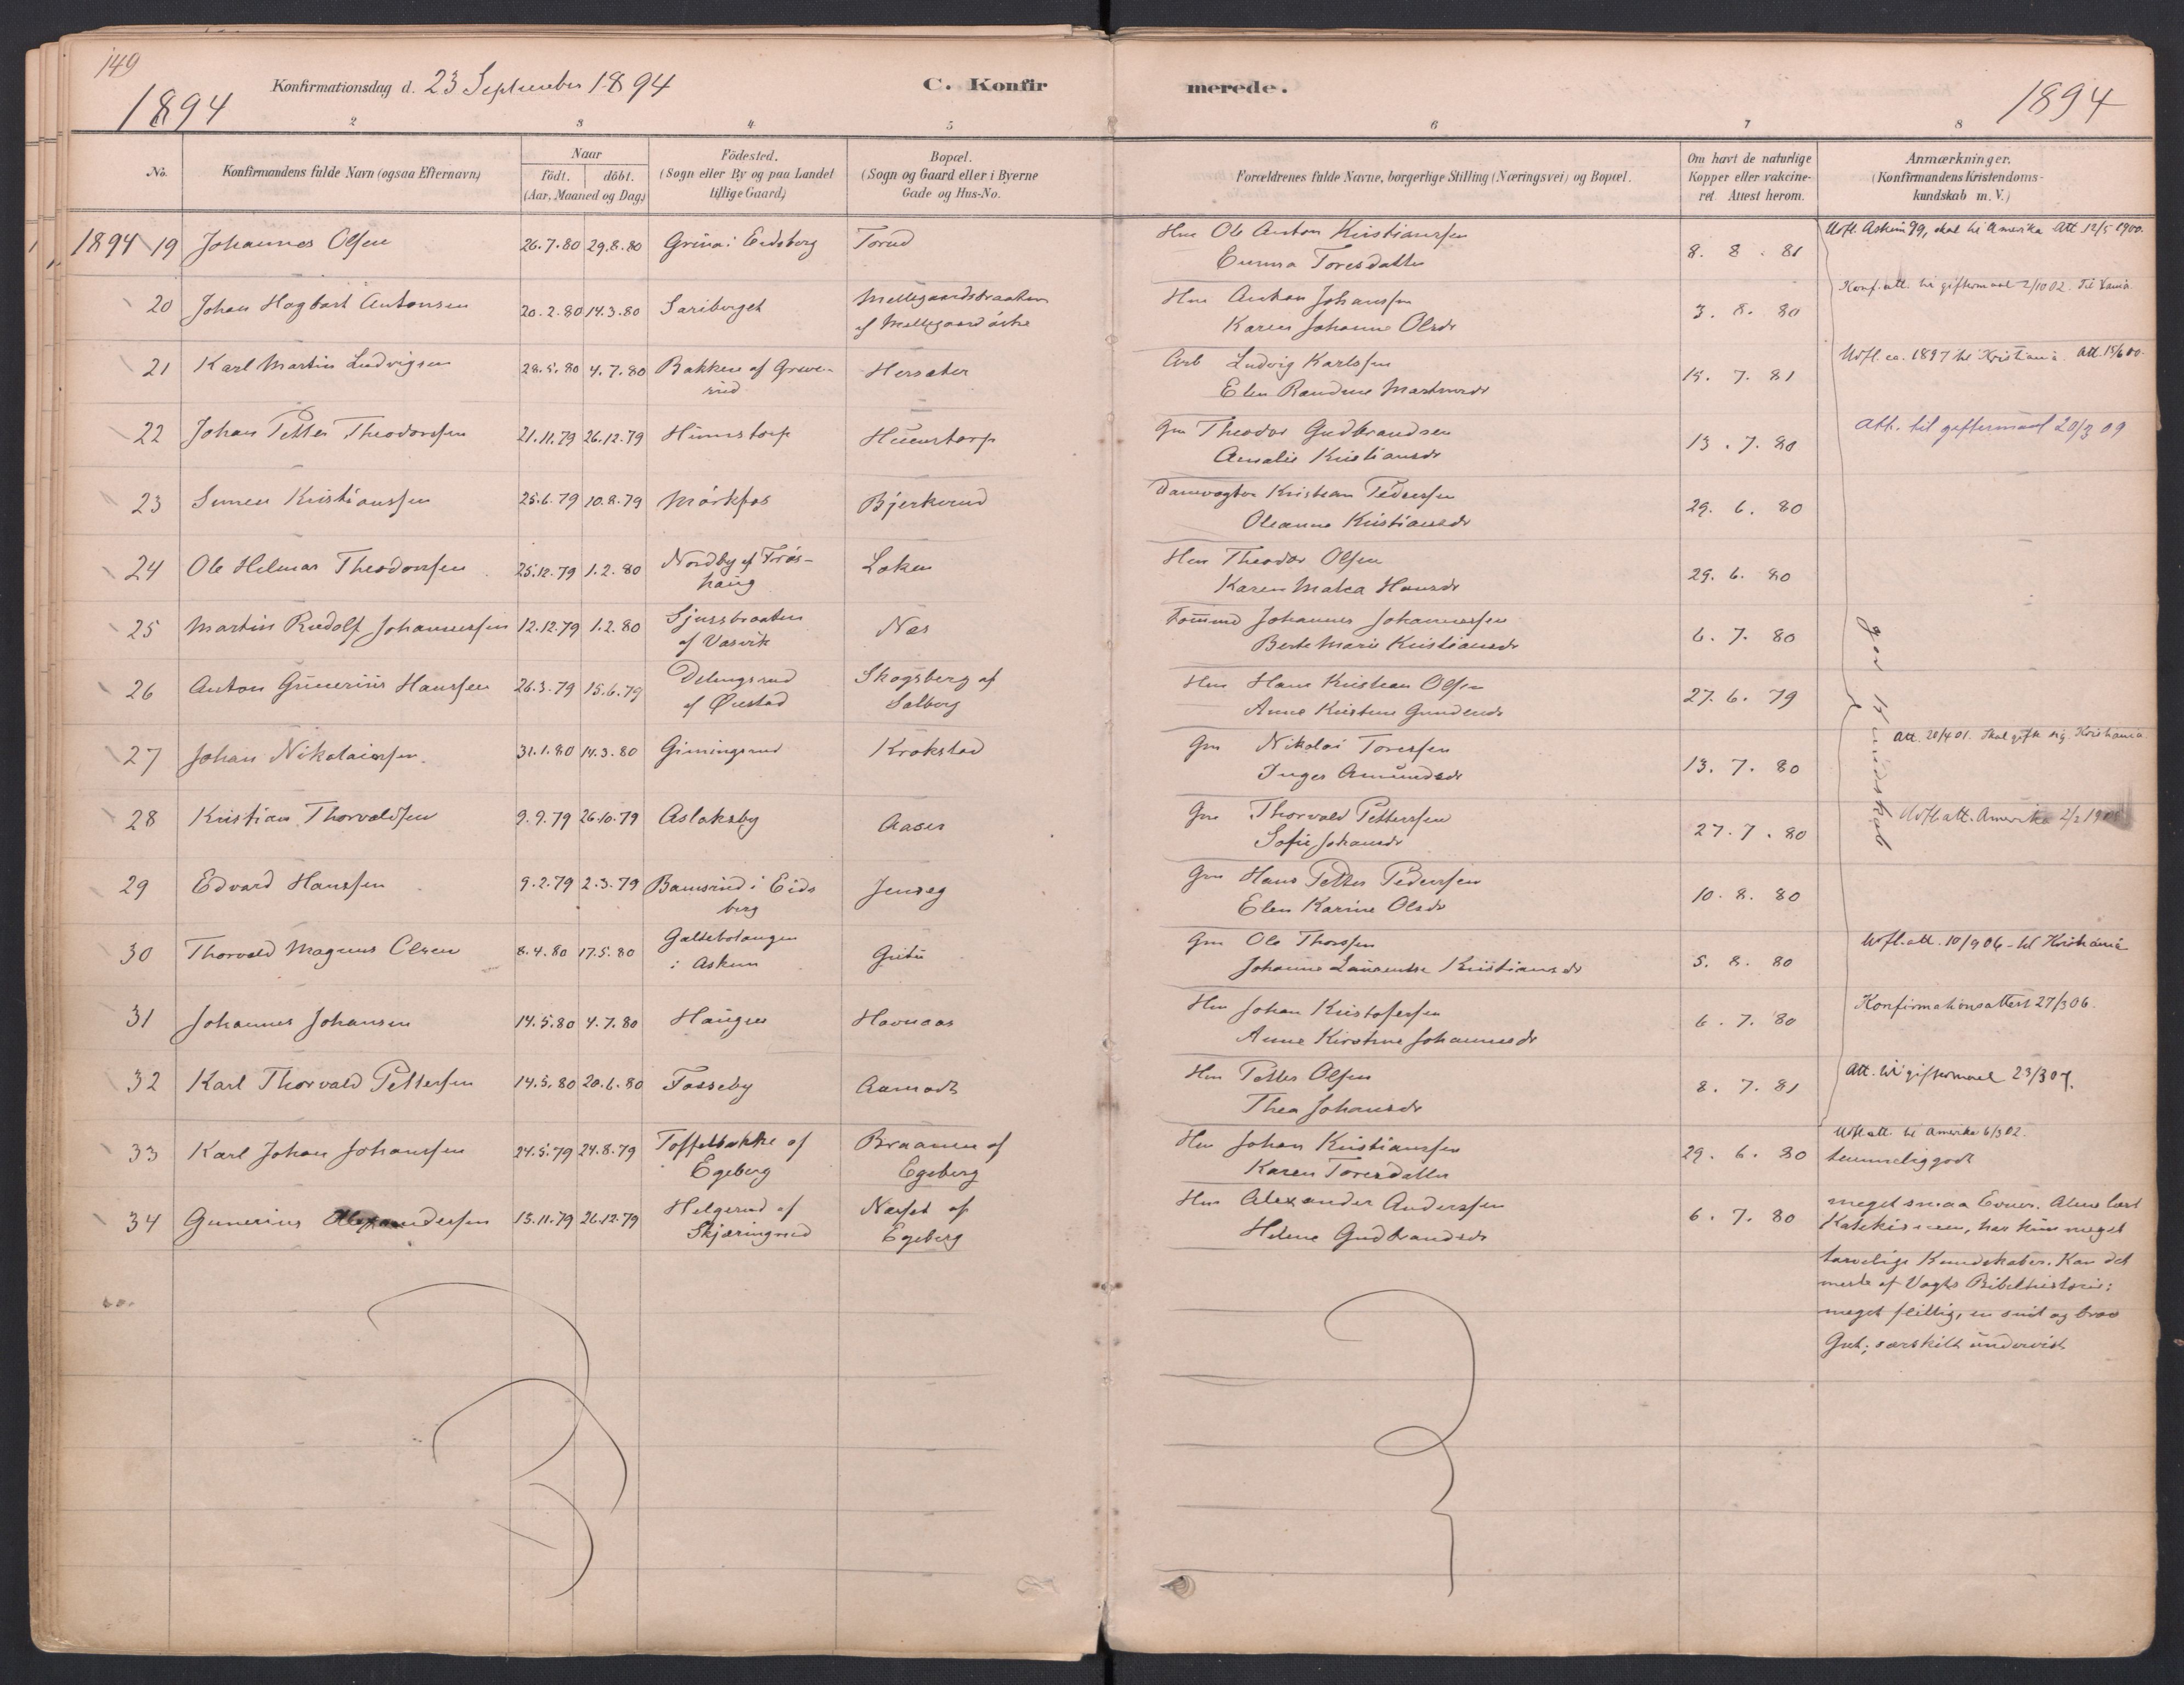 149
1894
Konfirmationsdag d. 23 September 1894
C. Konfir
merede.
1894
2 3 4 5 6 7 8
No.
Konfirmandens fulde Navn (ogsaa Efternavn)
Naar
födt. döbt.
(Aar, Maaned og Dag)
Födested.
(Sogn eller By og paa Landet
tillige Gaard)
Bopæl.
(Sogn og Gaard eller i Byerne
Gade og Hus-No.
Forældrenes fulde Navne, borgerlige Stilling (Næringsvei) og Bopæl.
Om havt de naturlige
Kopper eller vakcine-
ret. Attest herom.
Anmærkninger.
(Konfirmandens Kristendoms-
kundskab m. V.)
1894 19 Johannes Olsen 26.7.80 29.8.80 Grina i Eidsberg Torud Hm Ole Anton Kristianssen 8. 8. 81 Utfl. Askim 99, skal til Amerika Att 12/5 1900.
Emma Toresdatter
20 Johan Hagbart Antonsen 20.2.80 14.3.80 Sariberget Mellegaardsbraaten Hm Anton Johanssen 3. 8. 80 Konf. att. til giftermaal 2/10 02. Til Xania
af Mellegaard østre Karen Johanne Olsdr
21 Karl Martin Ludvigsen 28.5.80 4.7.80 Bakken af Greve- Hersæter Arb Ludvig Karlssen 15. 7. 81 Utfl. ca. 1897 til Kristiania. Att. 15/6 00.
rud Elen Randine Martinsdr
22 Johan Petter Theodorssen 21.11.79 26.12.79 Humstorp Humstorp Gm Theodor Gudbrandsen 13. 7. 80 Att. til giftermaal 20/3 09
Amalie Kristiansdr
23 Simen Kristianssen 25.6.79 10.8.79 Mörkfos Bjerkerud Damvogter Kristian Pederssen 29. 6. 80
Oleanne Kristiansdr
24 Ole Helmar Theodorssen 25.12.79 1.2.80 Nordby af Frøs- Løken Hm Theodor Olsen 29. 6. 80
haug Karen Matea Hansdr
25 Martin Rudolf Johannessen 12.12.79 1.2.80 Sjussbraaten Næs Tømmd Johannes Johannessen 6. 7. 80
af Vasvik Berte Marie Kristiansdr
26 Anton Gunerius Hanssen 26.3.79 15.6.79 Delingsrud Skogsberg af Hm Hans Kristian Olsen 27. 6. 79
af Ørestad Solberg Anne Kirstine Gundersdr
god Kundskab
27 Johan Nikolaissen 31.1.80 14.3.80 Gimingsrud Krokstad Gm Nikolai Toressen 13. 7. 80 Att. 20/4 01. Skal gifte sig. Kristiania
Inger Amundsdr
28 Kristian Thorvaldsen 9.9.79 26.10.79 Aslaksby Aaser Gm Thorvald Petterssen 27. 7. 80 Utfl. att. Amerika
Sofie Johansdr
29 Edvard Hanssen 9.2.79 2.3.79 Bamsrud i Eids Jenseg Gm Hans Petter Pederssen 10. 8. 80
berg Elen Karine Olsdr
30 Thorvald Magnus Olsen 8.4.80 17.5.80 Galtebolaugen Gutu Gm Ole Thorssen 5. 8. 80 Utfl. att. 10/9 06 - til Kristiania
i Askim Johanne Laurentse Kristiansdr
31 Johannes Johansen 14.5.80 4.7.80 Haugen Havnaas Hm Johan Kristoferssen 6. 7. 80 Konfirmationsattest 27/3 06.
Anne Kirstine Johannesdr
32 Karl Thorvald Petterssen 14.5.80 20.6.80 Fosseby Aamodt Hm Petter Olsen 8. 7. 81 Att. til giftermaal 23/3 07.
Thea Johansdr
33 Karl Johan Johanssen 24.5.79 24.8.79 Toffelbakke af Braanen af Hm Johan Kristianssen 29. 6. 80 Utfl att. til Amerika 6/3 02.
Egeberg Egeberg Karen Toresdatter temmelig godt
34 Gunerius Alexanderssen 13.11.79 26.12.79 Helgerud af Næsset af Hm Alexander Anderssen 6. 7. 80 meget smaa Evner. Alene læst
Skjæringrud Egeberg Helene Gudbrandsdr Katekismen, har kun meget
tarvelige Kundskaber. Kan det
meste af Vogts Bibelhistorie;
meget flittig, en snil og brav
Gut; særskilt undervist